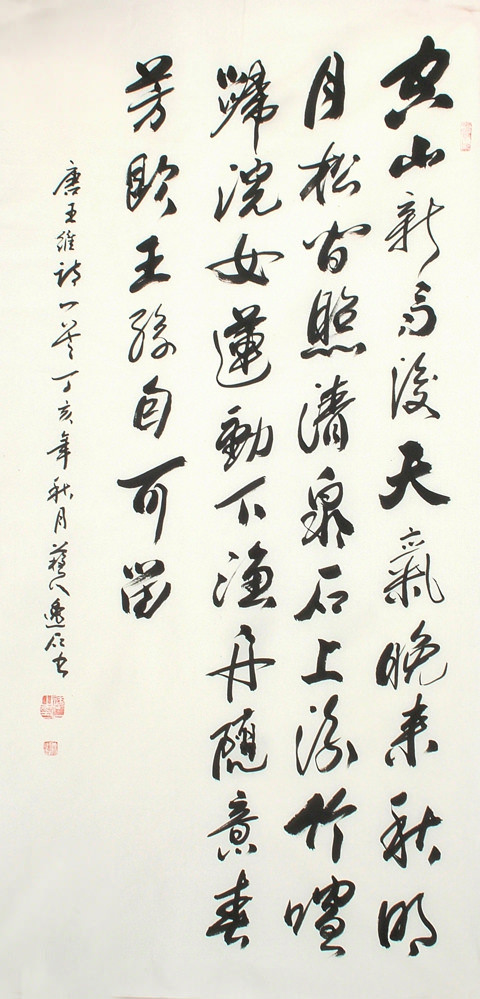 空山新雨後天氣晚来秋明
月松間照清泉石上流竹喧
歸浣女蓮動下漁舟隨意春
芳歇王孫自可留
唐王維詩一首丁亥年秋月石书